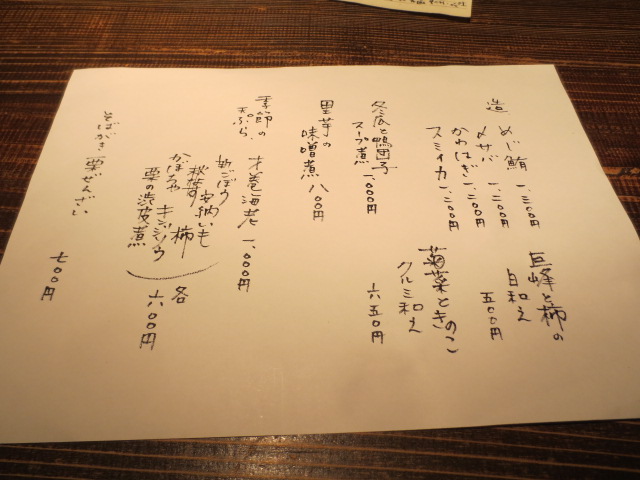 造 めじ鮪 一、三〇〇円
〆サバ 一、二〇〇円
かわはぎ 一、二〇〇円
スミイカ 一、二〇〇円
巨峰と柿の
白和え
五〇〇円
冬瓜と鴨団子
スープ煮 一、〇〇〇円
菊菜ときのこ
クルミ和え
六五〇円
里芋の
味噌煮 八〇〇円
季節の
天ぷら
才巻海老 一、〇〇〇円
新ごぼう
安納いも
秋茄子 柿
かぼちゃ キジシウ
栗の渋皮煮
各
六〇〇円
そばがき 栗ぜんざい
七〇〇円